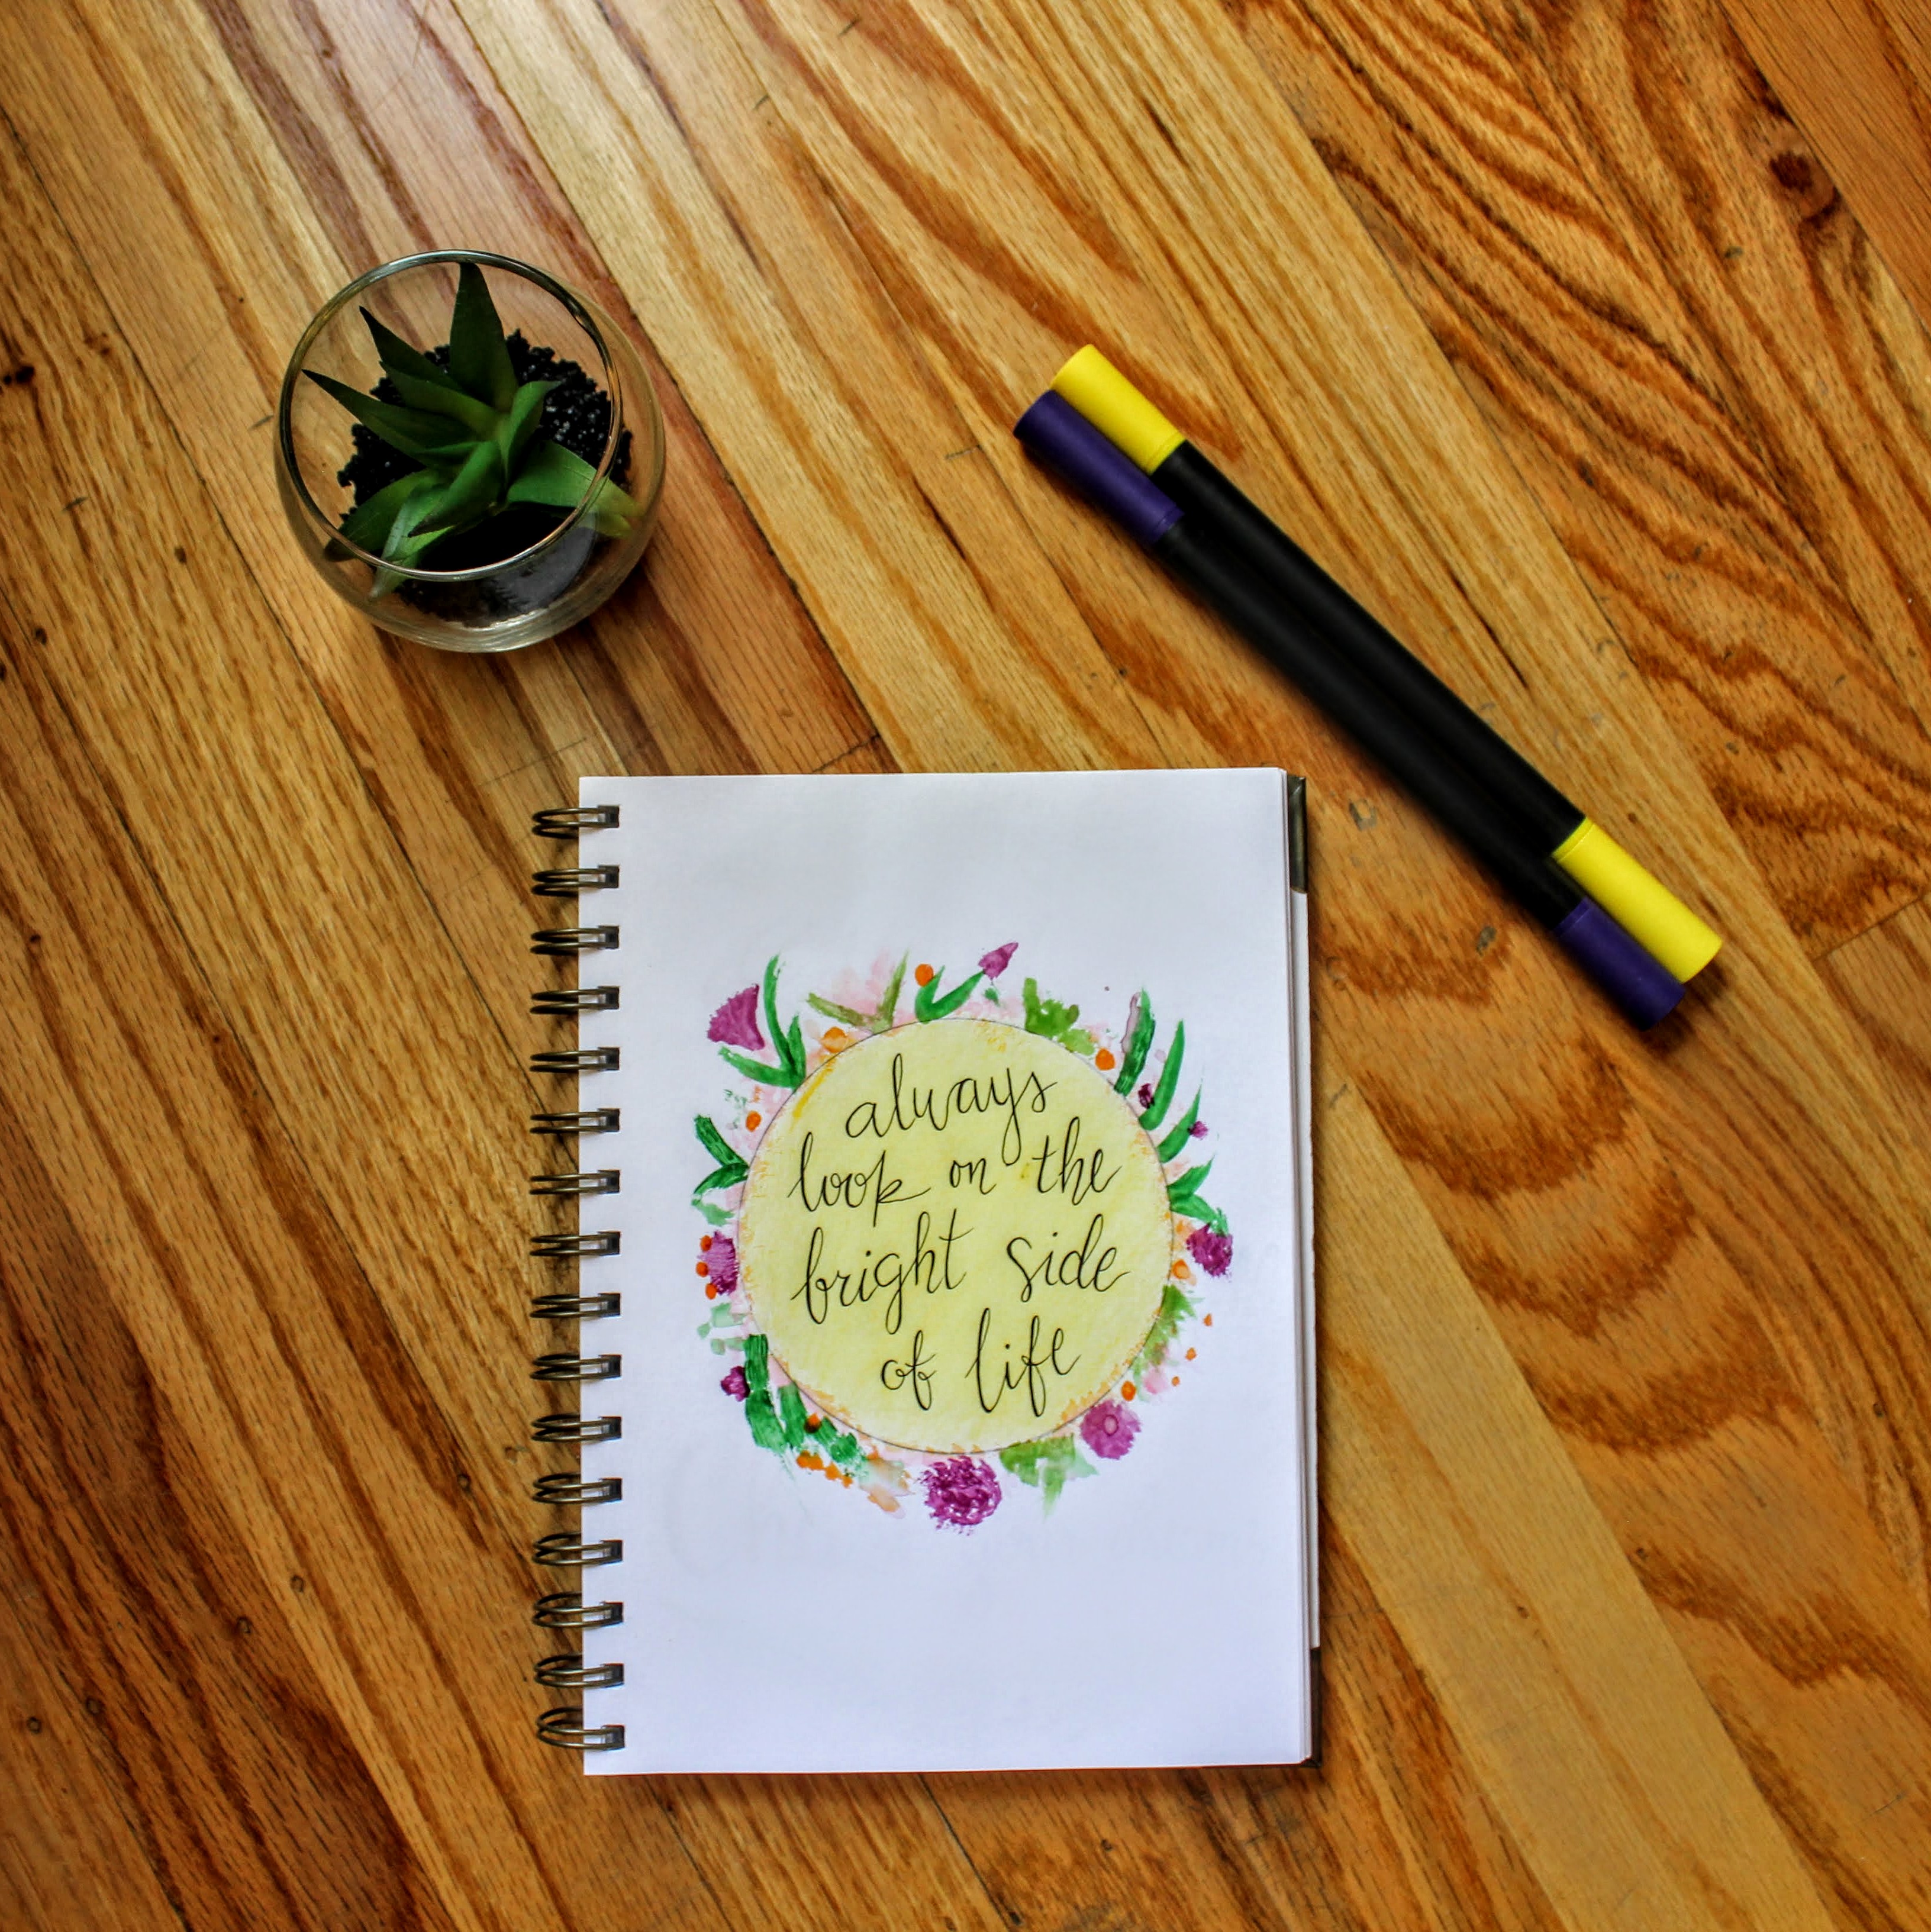 always
look on the
bright side
of life